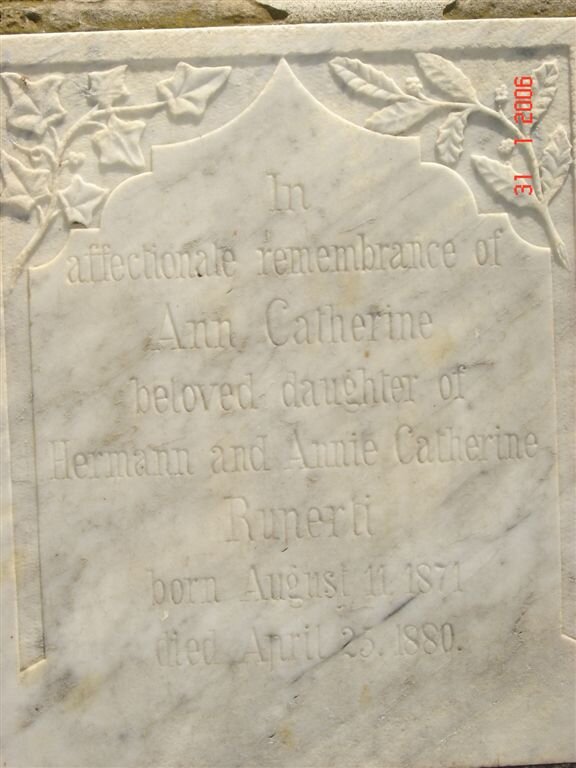 In
affectionate remembrance of
Ann Catherine
beloved daughter of
Hermann and Annie Catherine
Ruperti
born August 11. 1871
died April 25. 1880.
31 1 2006